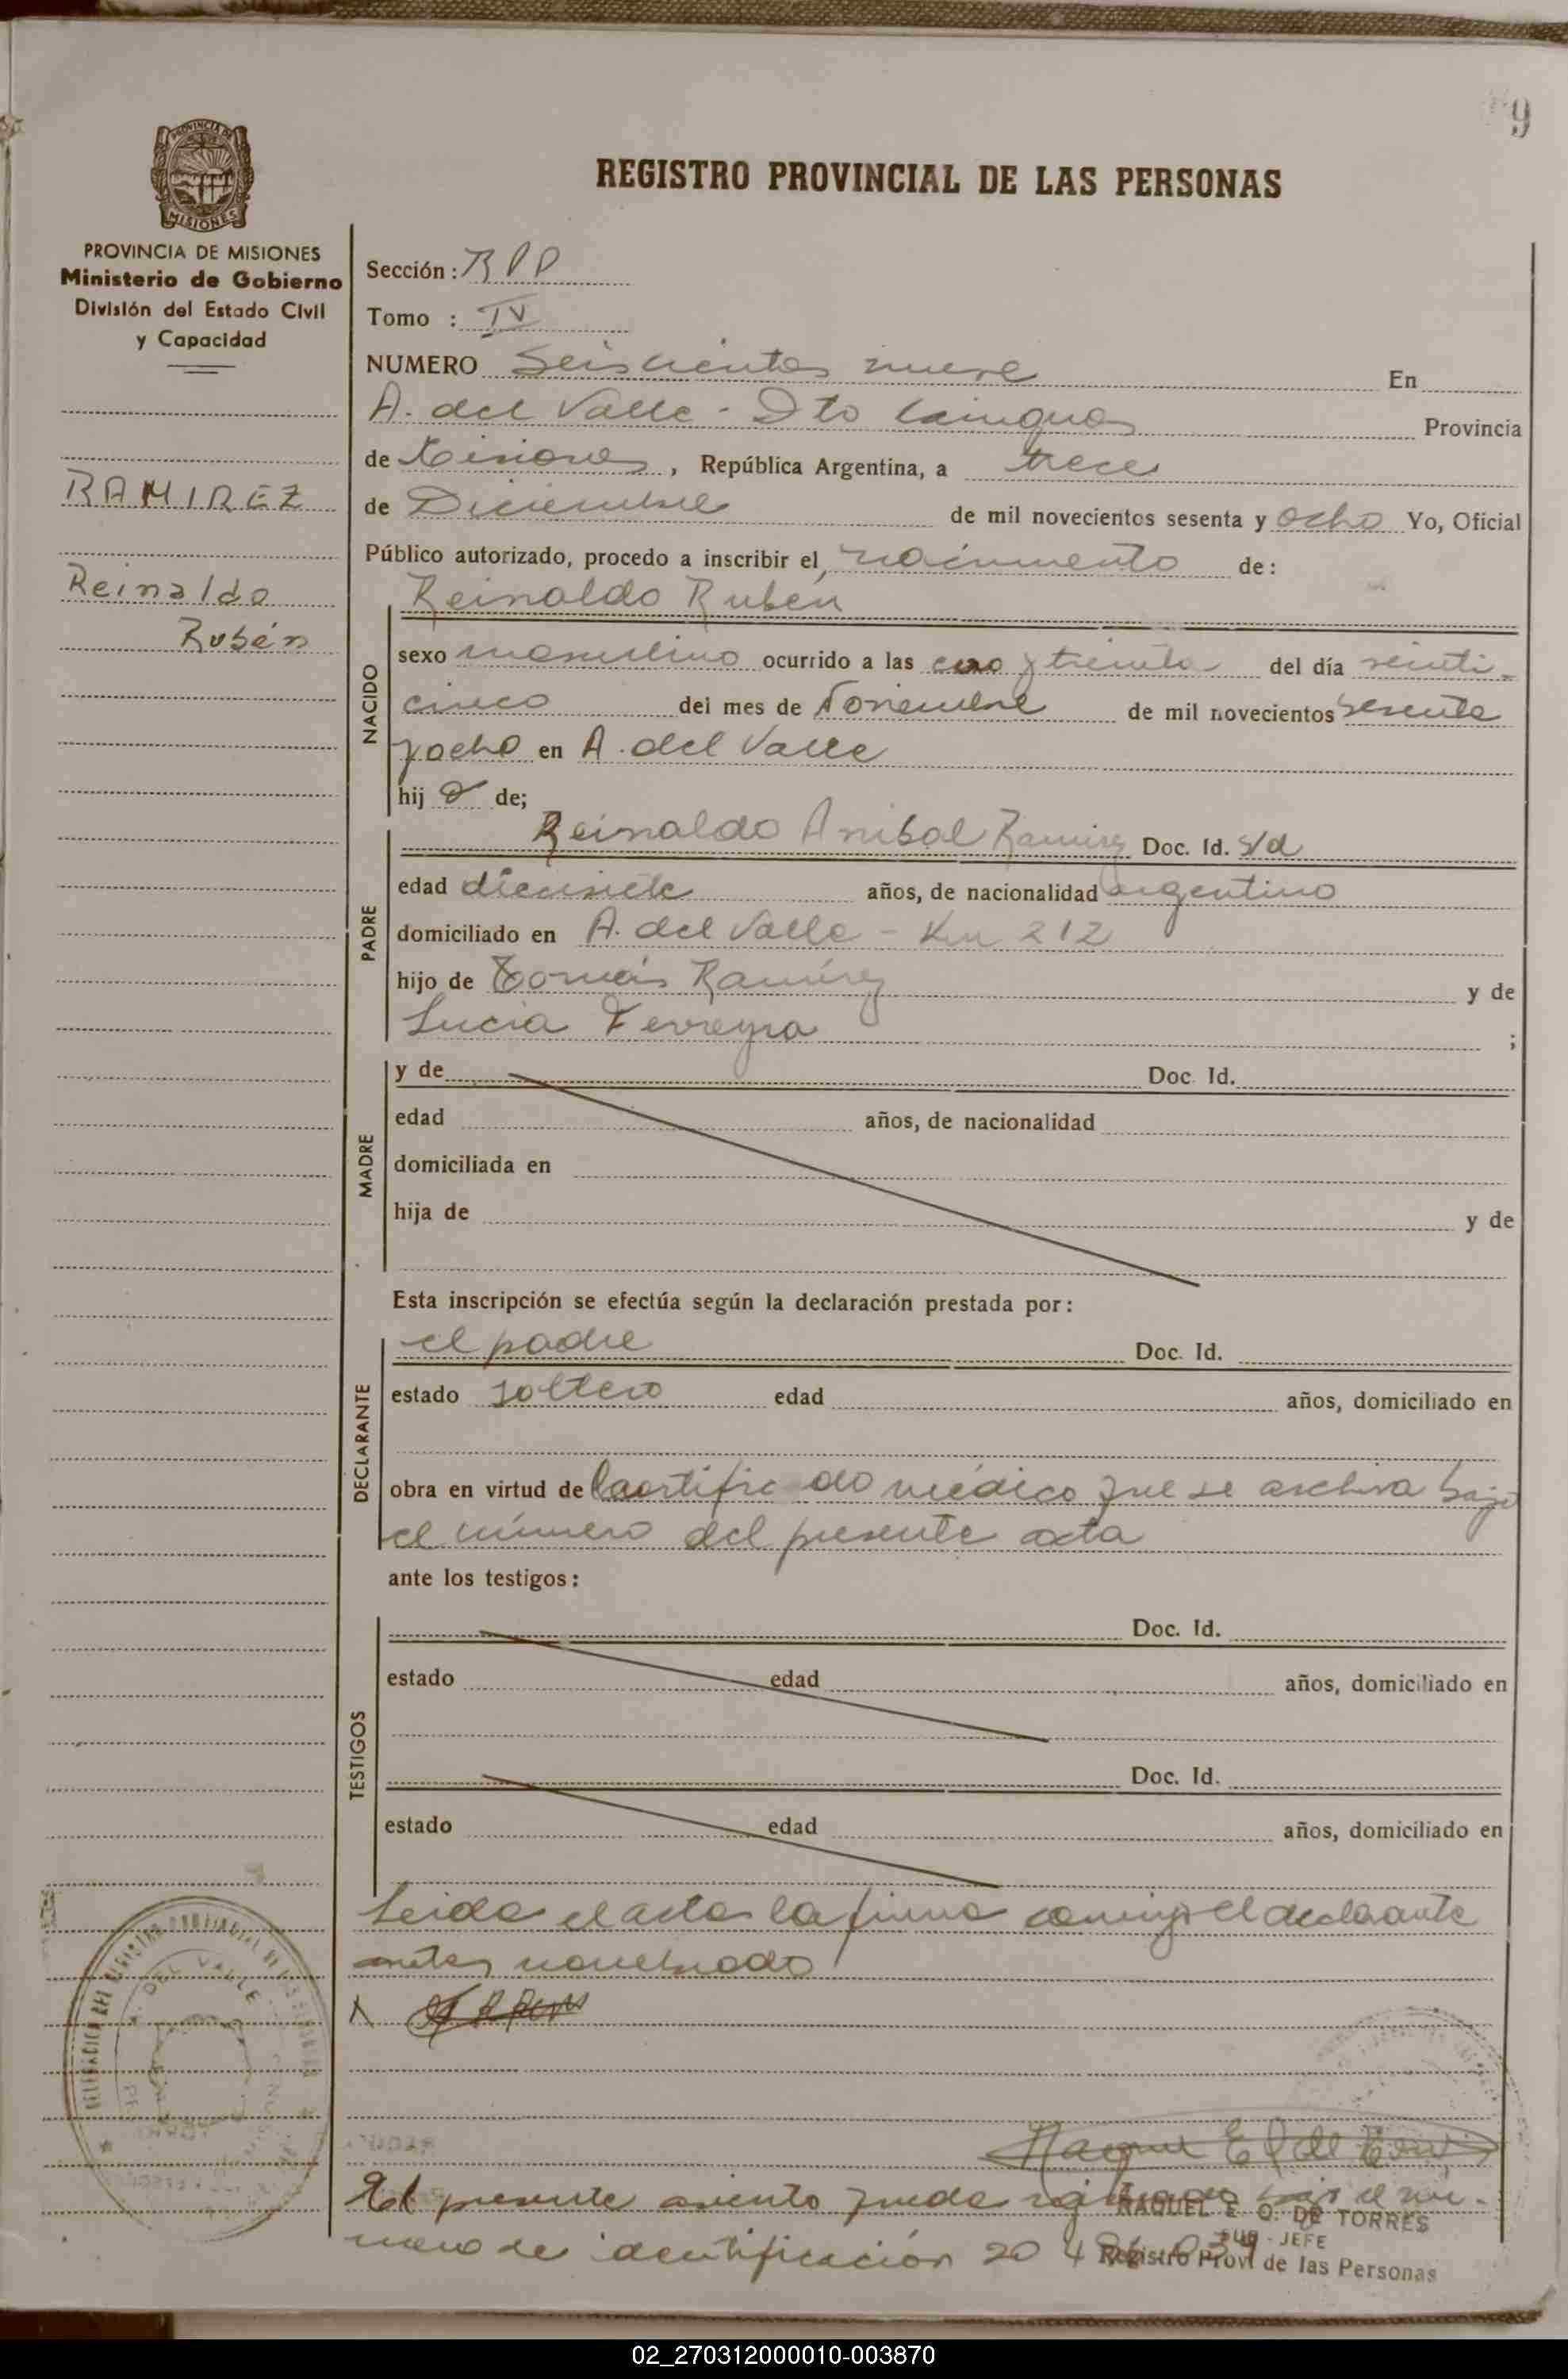 9
PROVINCIA DE
MISIONES
REGISTRO PROVINCIAL DE LAS PERSONAS
PROVINCIA DE MISIONES
Ministerio de Gobierno
División del Estado Civil
y Capacidad
RAMIREZ
Reinaldo
Rubén
Sección:
Tomo : IV
NUMERO Seiscientos nueve En
A. del Valle - Dto Cainguas Provincia
de Misiones, República Argentina, a trece
de Diciembre de mil novecientos sesenta y ocho Yo, Oficial
Público autorizado, procedo a inscribir el nacimiento de:
NACIDO
Reinaldo Rubén
sexo masculino ocurrido a las cero y treinta del día veinti-
cinco del mes de Noviembre de mil novecientos sesenta
y ocho en A. del Valle
hij o de;
PADRE
Reinaldo Anibal Ramirez Doc. Id. s/d
edad diecisiete años, de nacionalidad argentino
domiciliado en A. del Valle - Km 212
hijo de Tomás Ramírez y de
Lucia Ferreyra ;
MADRE
y de Doc. Id.
edad años, de nacionalidad
domiciliada en
hija de y de
Esta inscripción se efectúa según la declaración prestada por:
DECLARANTE
el padre Doc. Id.
estado soltero edad años, domiciliado en
obra en virtud de certificado médico que se archiva bajo
el número del presente acta
ante los testigos:
TESTIGOS
Doc. Id.
estado edad años, domiciliado en
Doc. Id.
estado edad años, domiciliado en
Leida el acta la firma conmigo el declarante
antes nombrado
DELEGACION DEL REGISTRO PROVINCIAL DE LAS PERSONAS
A. DEL VALLE
El presente asiento queda registrado bajo el nú-
mero de identificación 20
RAQUEL E. O. DE TORRES
SUB - JEFE
Registro Prov. de las Personas
02_270312000010-003870